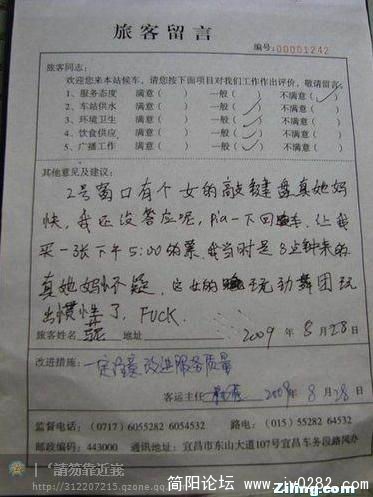 旅客留言
编号:00001242
旅客同志:
欢迎您来本站候车,请您按下面项目对我们工作作出评价,敬请留言:
1、服务态度 满意( ) 一般( ) 不满意(✓)
2、车站供水 满意( ) 一般(✓) 不满意( )
3、环境卫生 满意( ) 一般(✓) 不满意( )
4、饮食供应 满意( ) 一般(✓) 不满意( )
5、广播工作 满意( ) 一般(✓) 不满意( )
其他意见及建议:
2号窗口有个女的敲键盘真她妈
快,我还没答应呢,Pia一下回车,让我
买一张下午5:00的票,我当时是8点钟来的
真她妈怀疑,这女的玩劲舞团玩
出惯性了,FUCK.
旅客姓名 地址 2009年8月28日
改进措施:一定注意改进服务质量
客运主任 2009年8月28日
监督电话:(0717)6055282 6054532 路电:(015)55282 64532
邮政编码:443000 通讯地址:宜昌市东山大道107号宜昌车务段路风办
『請勿靠近我
http://312207215.qzone.qq
简阳论坛 www.jy0282.com
Zliing.com